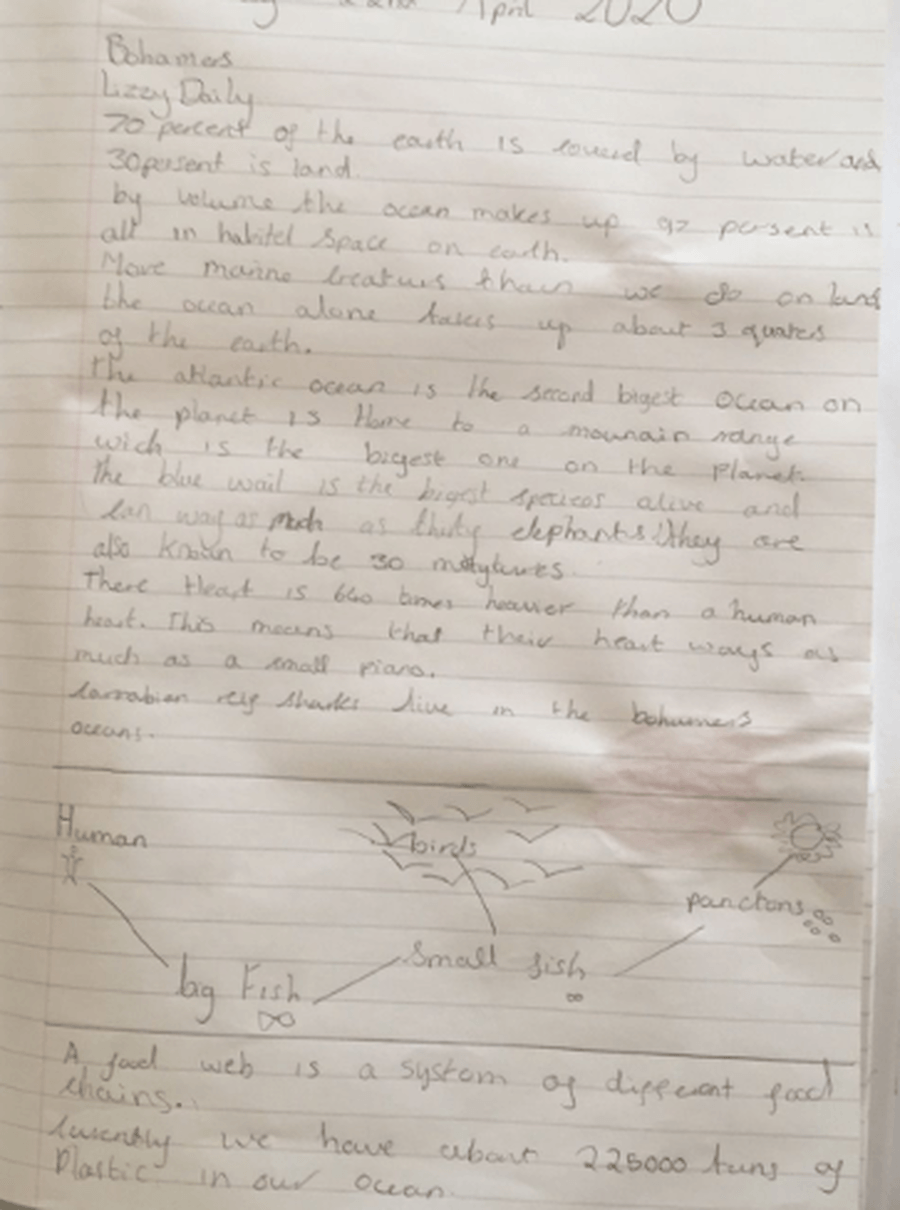 April 2020
Bohamers
Lizzy Daily
70 percent of the earth is coverd by water and
30 persent is land.
by volume the ocean makes up 97 persent is
all in habitel space on earth.
More marine creaturs than we do on land
the ocean alone takes up about 3 quaters
of the earth.
the atlantic ocean is the second bigest ocean on
the planet is Home to a mounain range
wich is the bigest one on the Planet.
the blue wail is the bigest specieos alive and
can way as much as thirty elephants! they are
also known to be 30
There Heart is 640 times heavier than a human
heart. This means that their heart ways as
much as a small piano.
carrabien reif sharks live in the bohumers
oceans.
Human
birds
panctons
small fish
big Fish
A food web is a system of different food
chains.
Curently we have about 225000 tuns of
Plastic in our ocean.